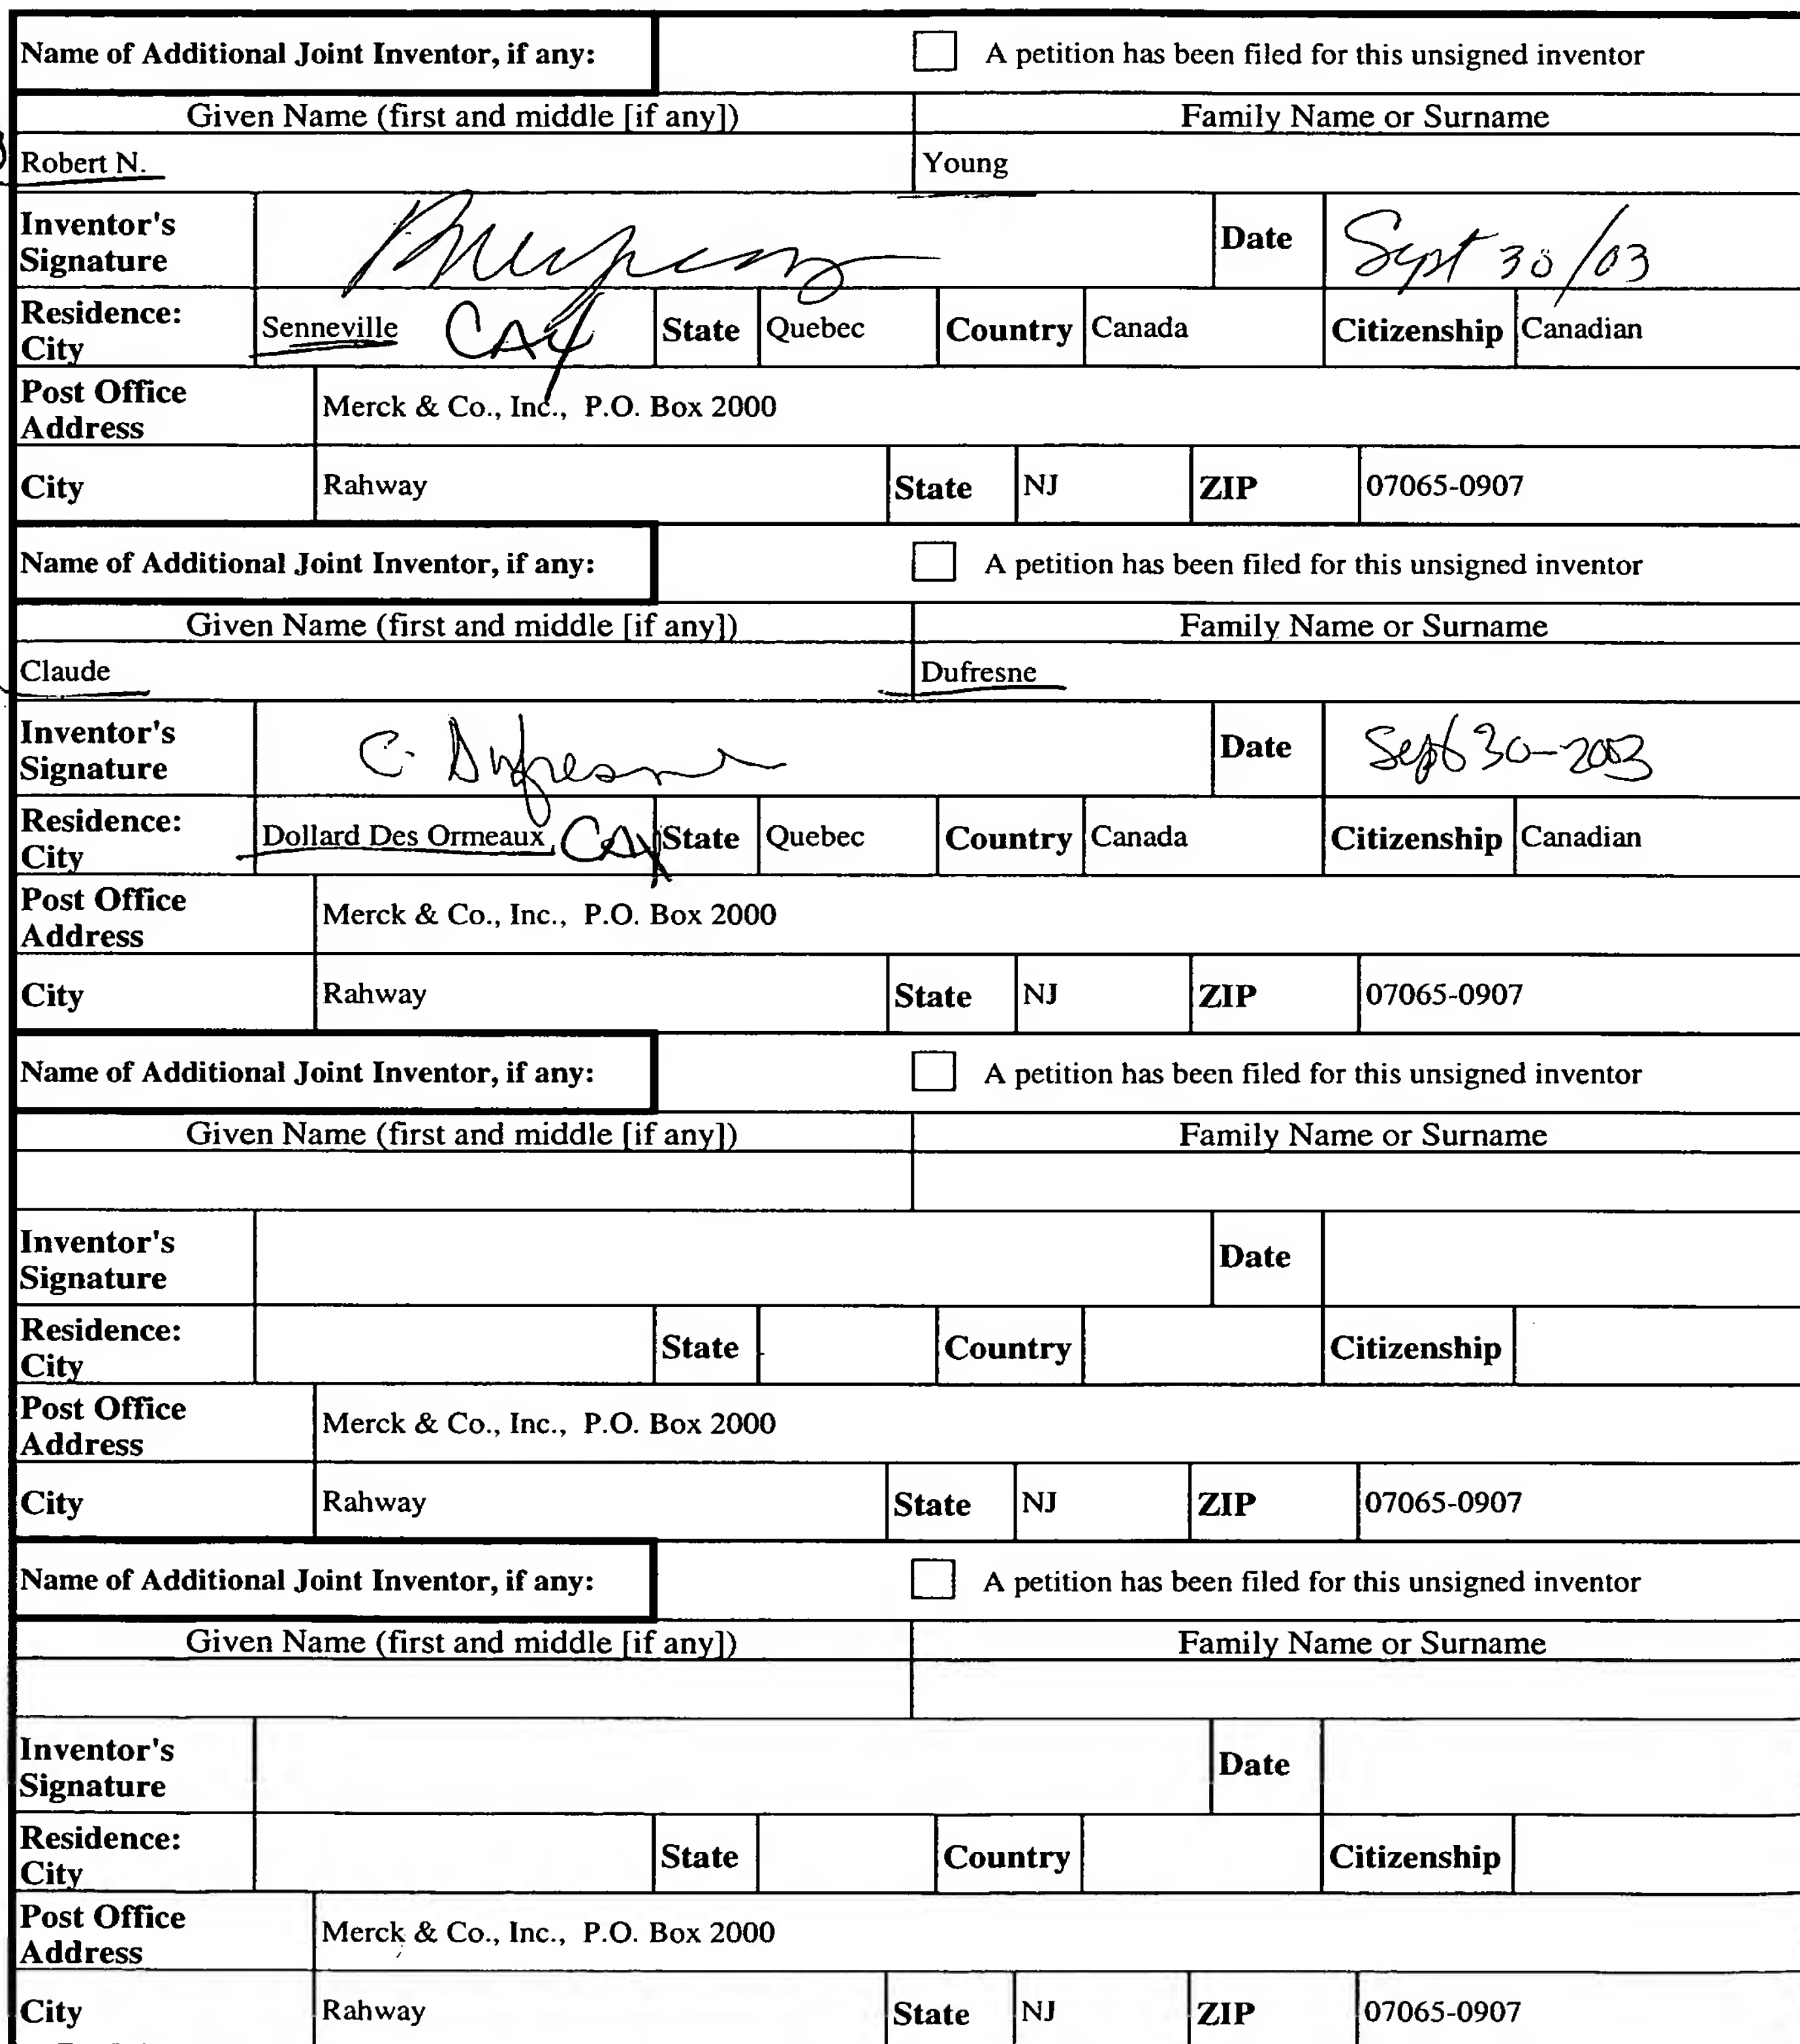 Name of Additional Joint Inventor, if any: A petition has been filed for this unsigned inventor
Given Name (first and middle [if any]) Family Name or Surname
Robert N. Young
Inventor's Signature Date Sept 30/03
Residence: City Senneville CAX State Quebec Country Canada Citizenship Canadian
Post Office Address Merck & Co., Inc., P.O. Box 2000
City Rahway State NJ ZIP 07065-0907
Name of Additional Joint Inventor, if any: A petition has been filed for this unsigned inventor
Given Name (first and middle [if any]) Family Name or Surname
Claude Dufresne
Inventor's Signature C. Dufresne Date Sept 30-2003
Residence: City Dollard Des Ormeaux CAX State Quebec Country Canada Citizenship Canadian
Post Office Address Merck & Co., Inc., P.O. Box 2000
City Rahway State NJ ZIP 07065-0907
Name of Additional Joint Inventor, if any: A petition has been filed for this unsigned inventor
Given Name (first and middle [if any]) Family Name or Surname
Inventor's Signature Date
Residence: City State Country Citizenship
Post Office Address Merck & Co., Inc., P.O. Box 2000
City Rahway State NJ ZIP 07065-0907
Name of Additional Joint Inventor, if any: A petition has been filed for this unsigned inventor
Given Name (first and middle [if any]) Family Name or Surname
Inventor's Signature Date
Residence: City State Country Citizenship
Post Office Address Merck & Co., Inc., P.O. Box 2000
City Rahway State NJ ZIP 07065-0907